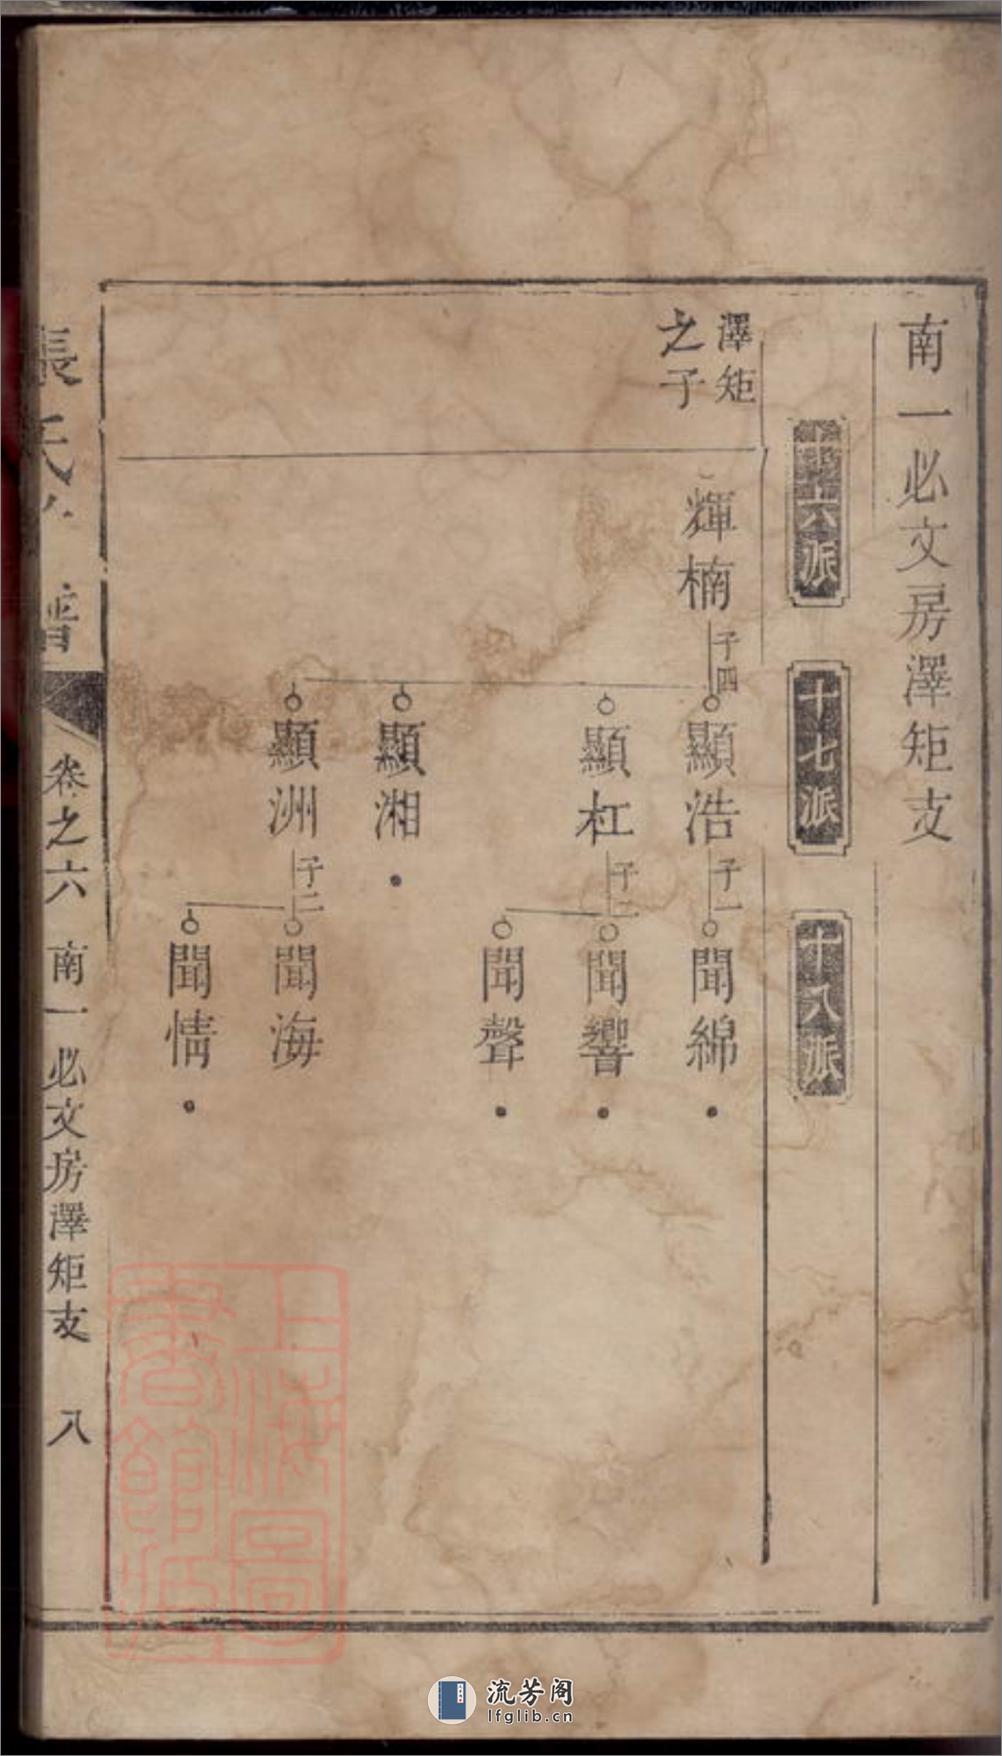 南一必文房澤矩支
十六派
十七派
十八派
澤矩
之子
輝楠
子四
顯浩
子一
聞綿
顯杠
子二
聞響
聞聲
顯湘
顯洲
子二
聞海
聞情
張氏 譜
卷之六
南一必文房澤矩支
八
上海圖
書館藏
流芳阁
lfglib.cn